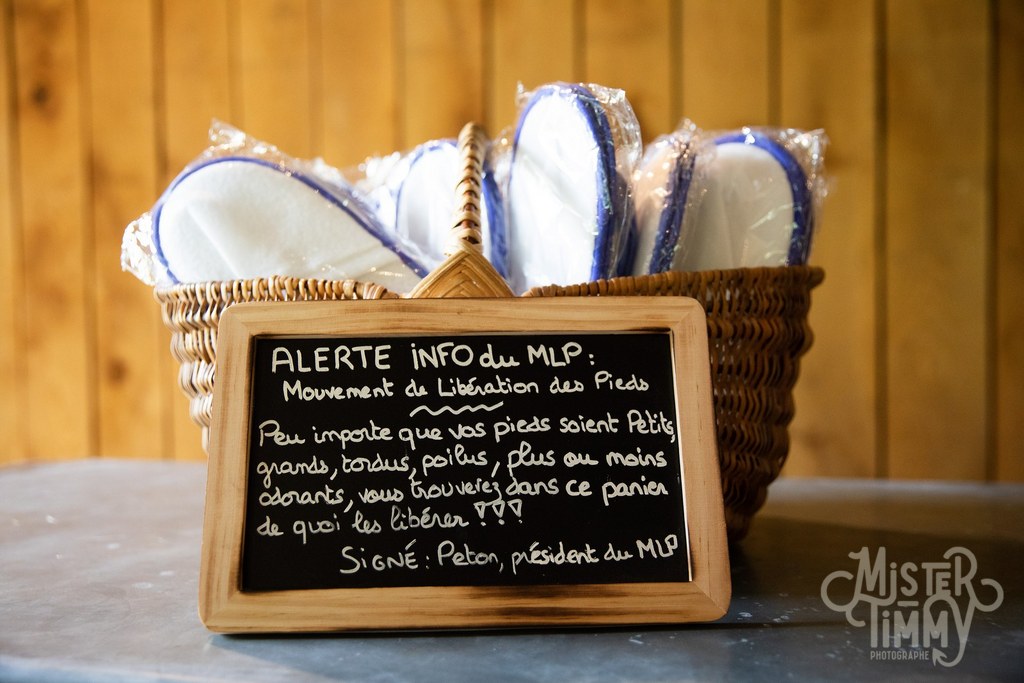 ALERTE INFO du MLP :
Mouvement de Libération des Pieds
Peu importe que vos pieds soient Petits,
grands, tordus, poilus, plus ou moins
odorants, vous trouverez dans ce panier
de quoi les libérer !!!
SIGNÉ : Peton, président du MLP
MISTER
TIMMY
PHOTOGRAPHE